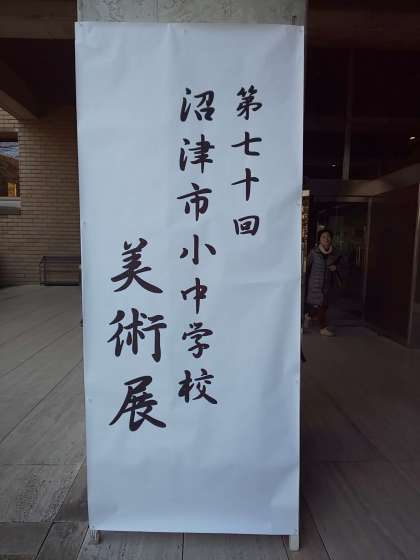 第七十回
沼津市小中学校
美術展